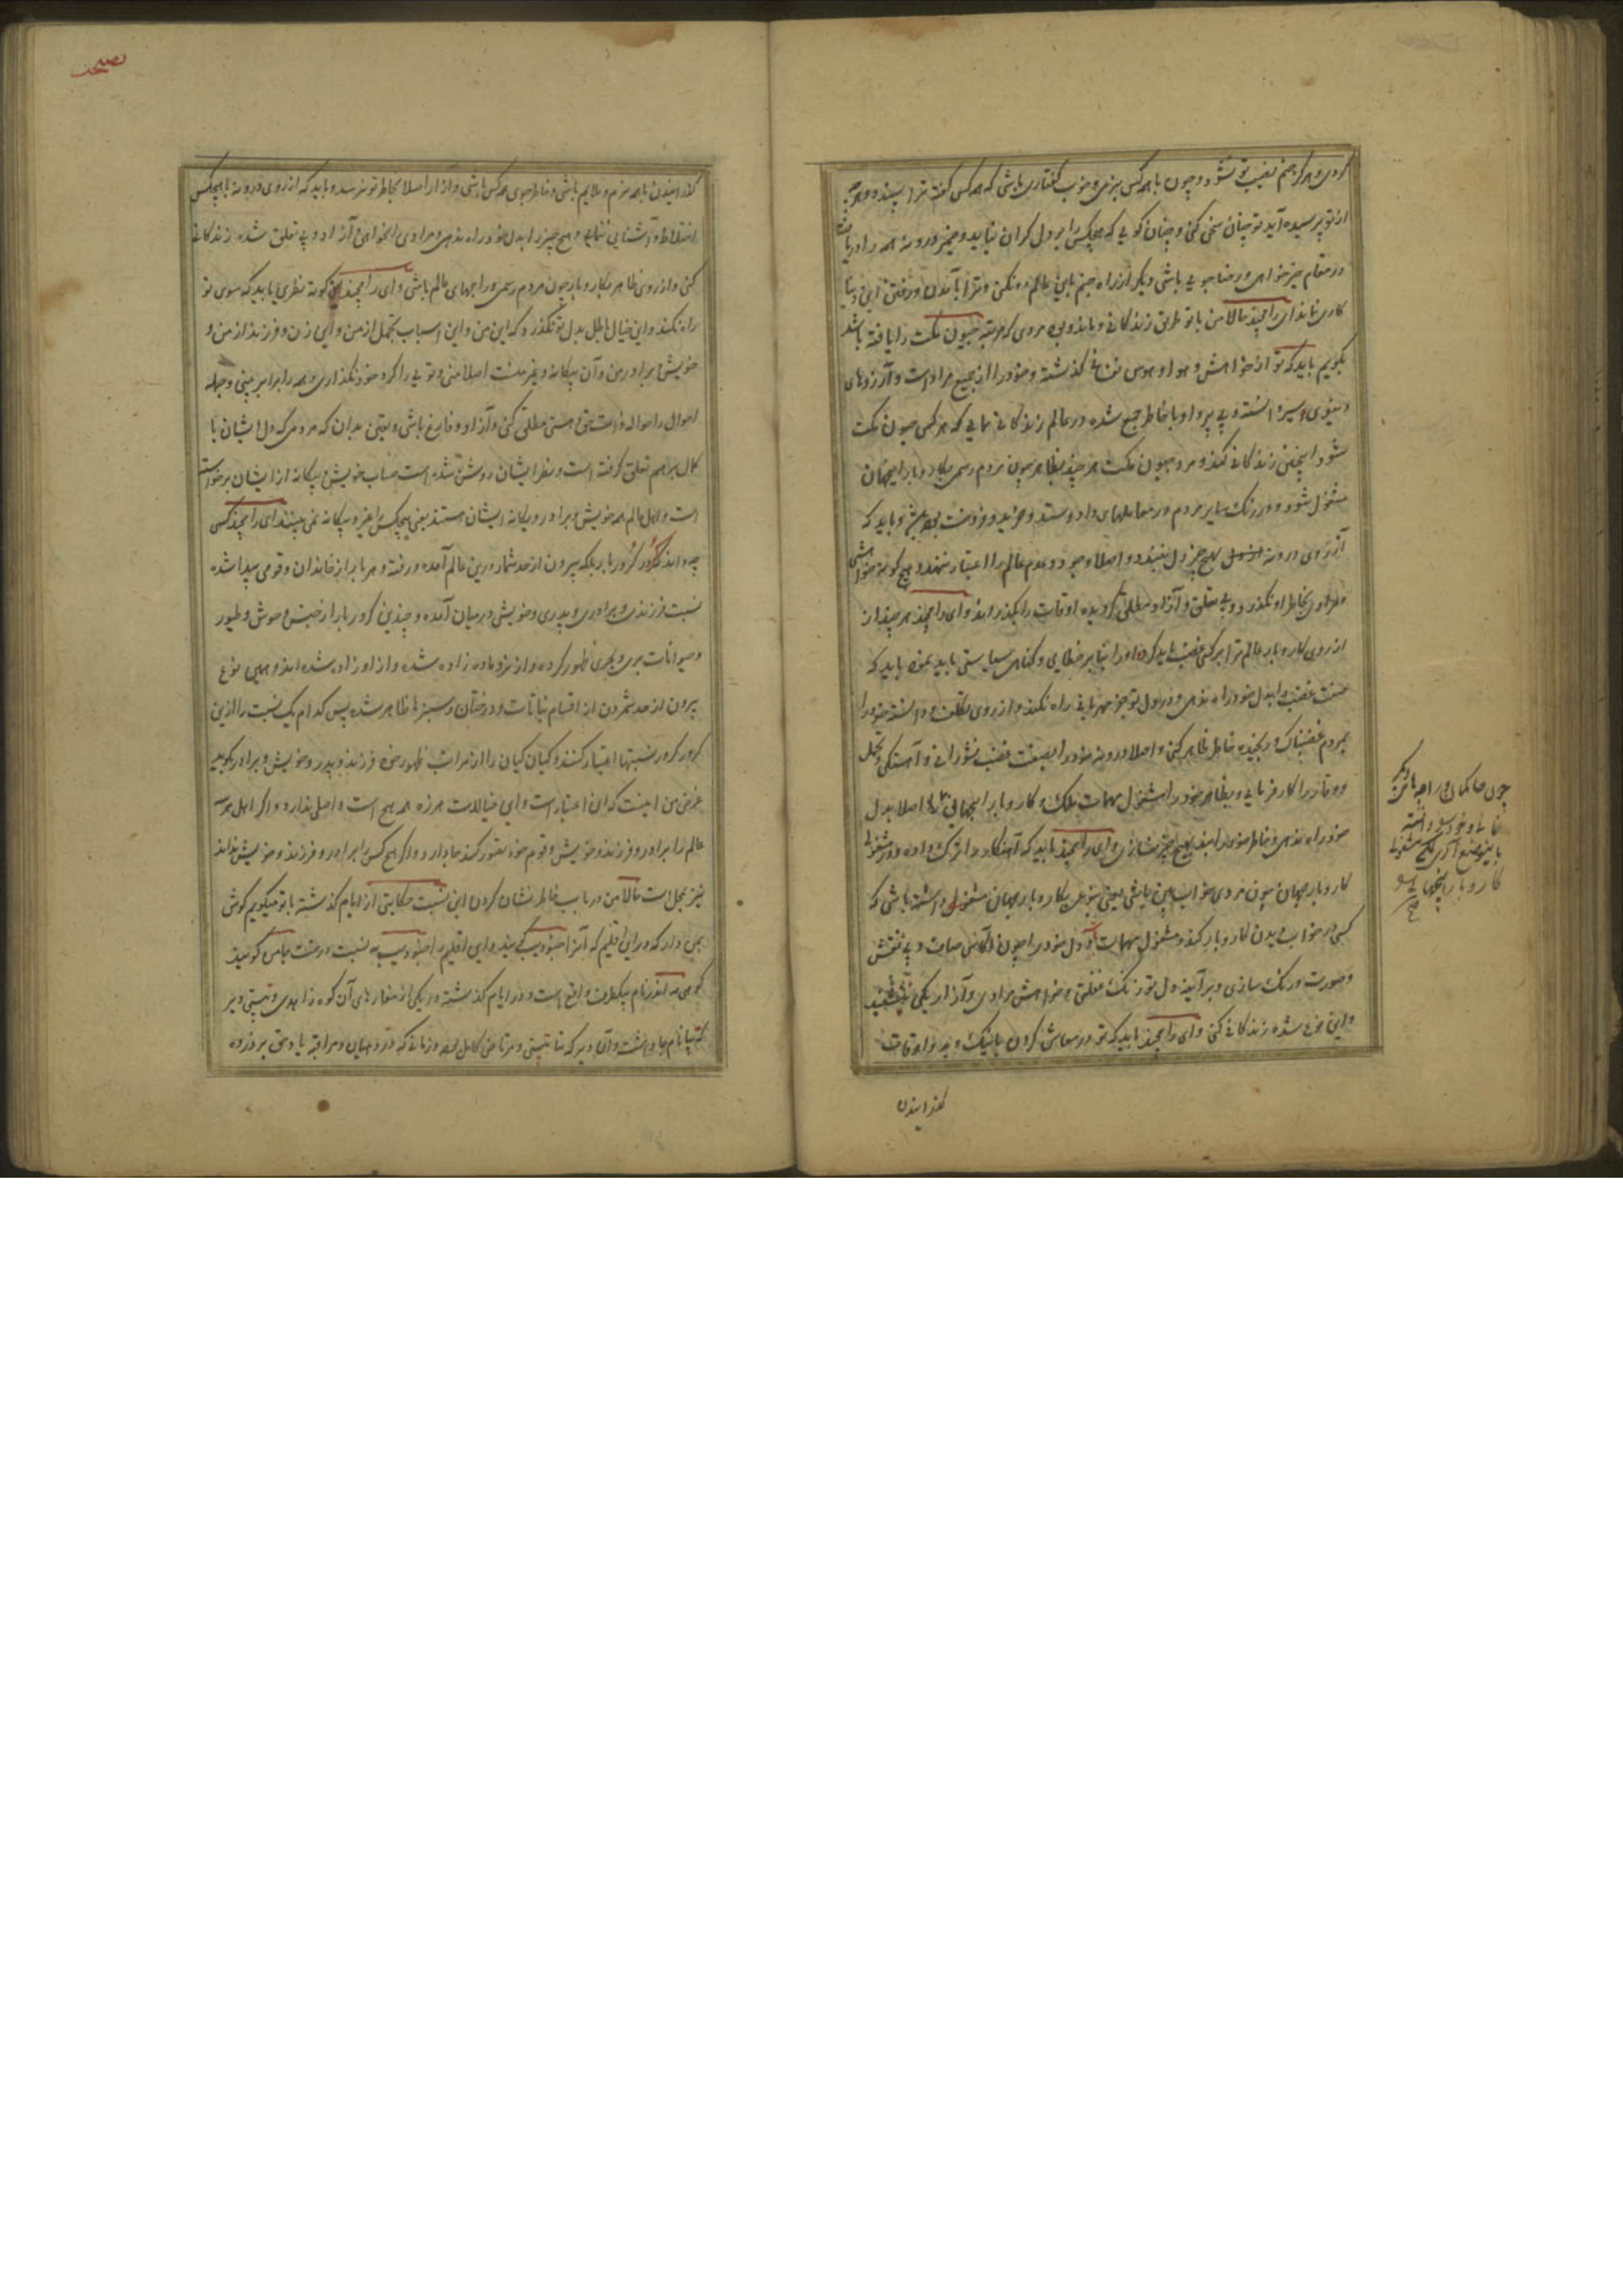 کردی و هرگز خشم نصیب تو نشود و چون با همه کس بنرمی و خوب گفتاری باشی که همه کس گفته ترا پسندد و هرچه
از تو پرسیده آید تو چنان سخن کنی و چنان گویی که هیچکس را بر دل گران نیاید و ضمیر درونه همه را دریافته
در مقام خیرخواهی و رضاجویی باشی دیگر از راه چشم باین عالم در نکنی و ترا با آمدن و رفتن این دنیا
کاری نماند ای رامچند حالا من با تو طریق زندگانی و ماند و بود مردی که مرتبه جیون مکت را یافته باشد
بگویم باید که تو از خواهش و هوا و هوس نفسانی گذشته و خود را از جمیع مرادات و آرزوهای
دنیوی سیر دانسته و بی پروا و با خاطر جمع شده در عالم زندگانی نمایی که هر کس جیون مکت
شود اینچنین زندگانی کند و مرد جیون مکت هر چند بظاهر چون مردم رسمی بکار و بار اینجهان
مشغول شود و در رنگ سایر مردم در معاملهای داد و ستد و خرید و فروخت بوده باشد و باید که
از روی درونه بهیچ چیز دل نبندد و اصلا وجود و عدم عالم را اعتبار ننهد و هیچ گونه خواهشی
و مرادی بخاطر او نگذرد و بی تعلق و آزاد مطلق گردیده اوقات را بگذراند و ای رامچند هر چند از
از روی کار و بار عالم ترا بر کسی غضب باید کرد و او را بنا بر خطایی و گناهی سیاستی باید نمود باید که
صفت غضب را بدل خود راه ندهی و در دل تو جز مهربانی راه نکند و از روی تکلف و دانسته خود را
بمردم غضبناک و رنجیده خاطر ظاهر کنی و اصلا درونه خود را بصفت غضب نشورانی و آهستگی و تحمل
و وقار را کار فرمایی و بظاهر خود را مشغول مهمات ملک و کار و بار اینجهانی نمایی اصلا بدل
خود راه ندهی و خاطر خود را بند بهیچ چیز نسازی و ای رامچند باید که آهنکار را ترک داده و در مشغولی
کار و بار جهان چون مردی خواب بین باشی یعنی بنوعی بکار و بار جهان مشغولی داشته باشی که
کسی در خواب دیدن کار و بار کند و مشغول مهمات آید و دل خود را چون آکاس صاف و بی نقش
و صورت و رنگ سازی و بر آیینه دل تو زنگ غفلت و خواهش مرادی و آزار یکی ننشیند
و این نوع شده زندگانی کنی و ای رامچند باید که تو در معاش کردن با نیک و بد و اوقات
گذرانیدن
چون حاکمان و راجه‌های دیگر
کار و بار اینجهانی
صح
نصیحت
گذرانیدن با همه نرم و ملایم باشی و خاطرجوی همه کس باشی و آزار اصلا بخاطر تو نرسد و باید که از روی درونه با هیچکس
اختلاط و آشنایی ننمایی و هیچ چیز را بدل خود راه ندهی و مرادی را نخواهی و آزاد و بی تعلق شده زندگانی
کنی و از روی ظاهر بکار و بار چون مردم رسمی و راجهای عالم باشی و ای رامچند این کوته نظری باید که سوی تو
راه نکند و این خیال باطل بدل تو نگذرد که این من و این اسباب تجمل از من و این زن و فرزند از من و
خویش برادر من و آن بیگانه و غیر منست اصلا منی و تویی را گرد خود نگذاری و همه را برابر بینی و جمله
احوال را حواله ذات حق هستی مطلق کنی و آزاد و فارغ باشی و یقین بدان که مردمی که دل ایشان با
کمال برهم تعلق گرفته است و نظر ایشان روشن شده است حساب خویش و بیگانه از ایشان برخواسته
است و اهل عالم همه خویش و برادر و یگانه ایشان هستند یعنی هیچکس را غیر و بیگانه نمی بینند ای رامچند کسی
چه داند کرور کرور بار بلکه بیرون از حد شمار درین عالم آمده و رفته و هر بار از خاندان و قومی پیدا شده
نسبت فرزندی و برادری و پدری و خویشی درمیان آمده و چندین کرور بار از جنس وحوش و طیور
و حیوانات بری و بحری ظهور کرده و از نر و ماده زاده شده و از او زاد شده اند و همین نوع
بیرون از حد شمردن از اقسام نباتات و درختان و سبزها ظاهر شده پس کدام یک نسبت را ازین
کرور کرور نسبتها اعتبار کنند و کیان کیان را از مراتب ظهور خود فرزند و پدر و خویش و برادر گویند
غرض من اینست که این اعتبارات و این خیالات هرزه همه هیچ است و اصلی ندارد و اگر اهل همه
عالم را برادر و فرزند و خویش و قوم خود تصور کند جا دارد و اگر هیچ کس را برادر و فرزند و خویش نداند
نیز بمحل است حالا من در باب خاطر نشان کردن این نسبت حکایتی از ایام گذشته با تو میگویم گوش
بمن دار که در این اقلیم که آنرا جنبودیپ گویند و این اقلیم را جنبودیپ به نسبت درخت جامن گویند
کوهی مهندر نام بیکطرف واقع است و در ایام گذشته در یکی از مغارهای آن کوه زاهدی و تپسی دیر
گهتپا نام جا داشت و آن دیرگهتپا تپسی و مرتاض کامل بود و زمانی که در دهیان و مراقبه یاد حق بر زده